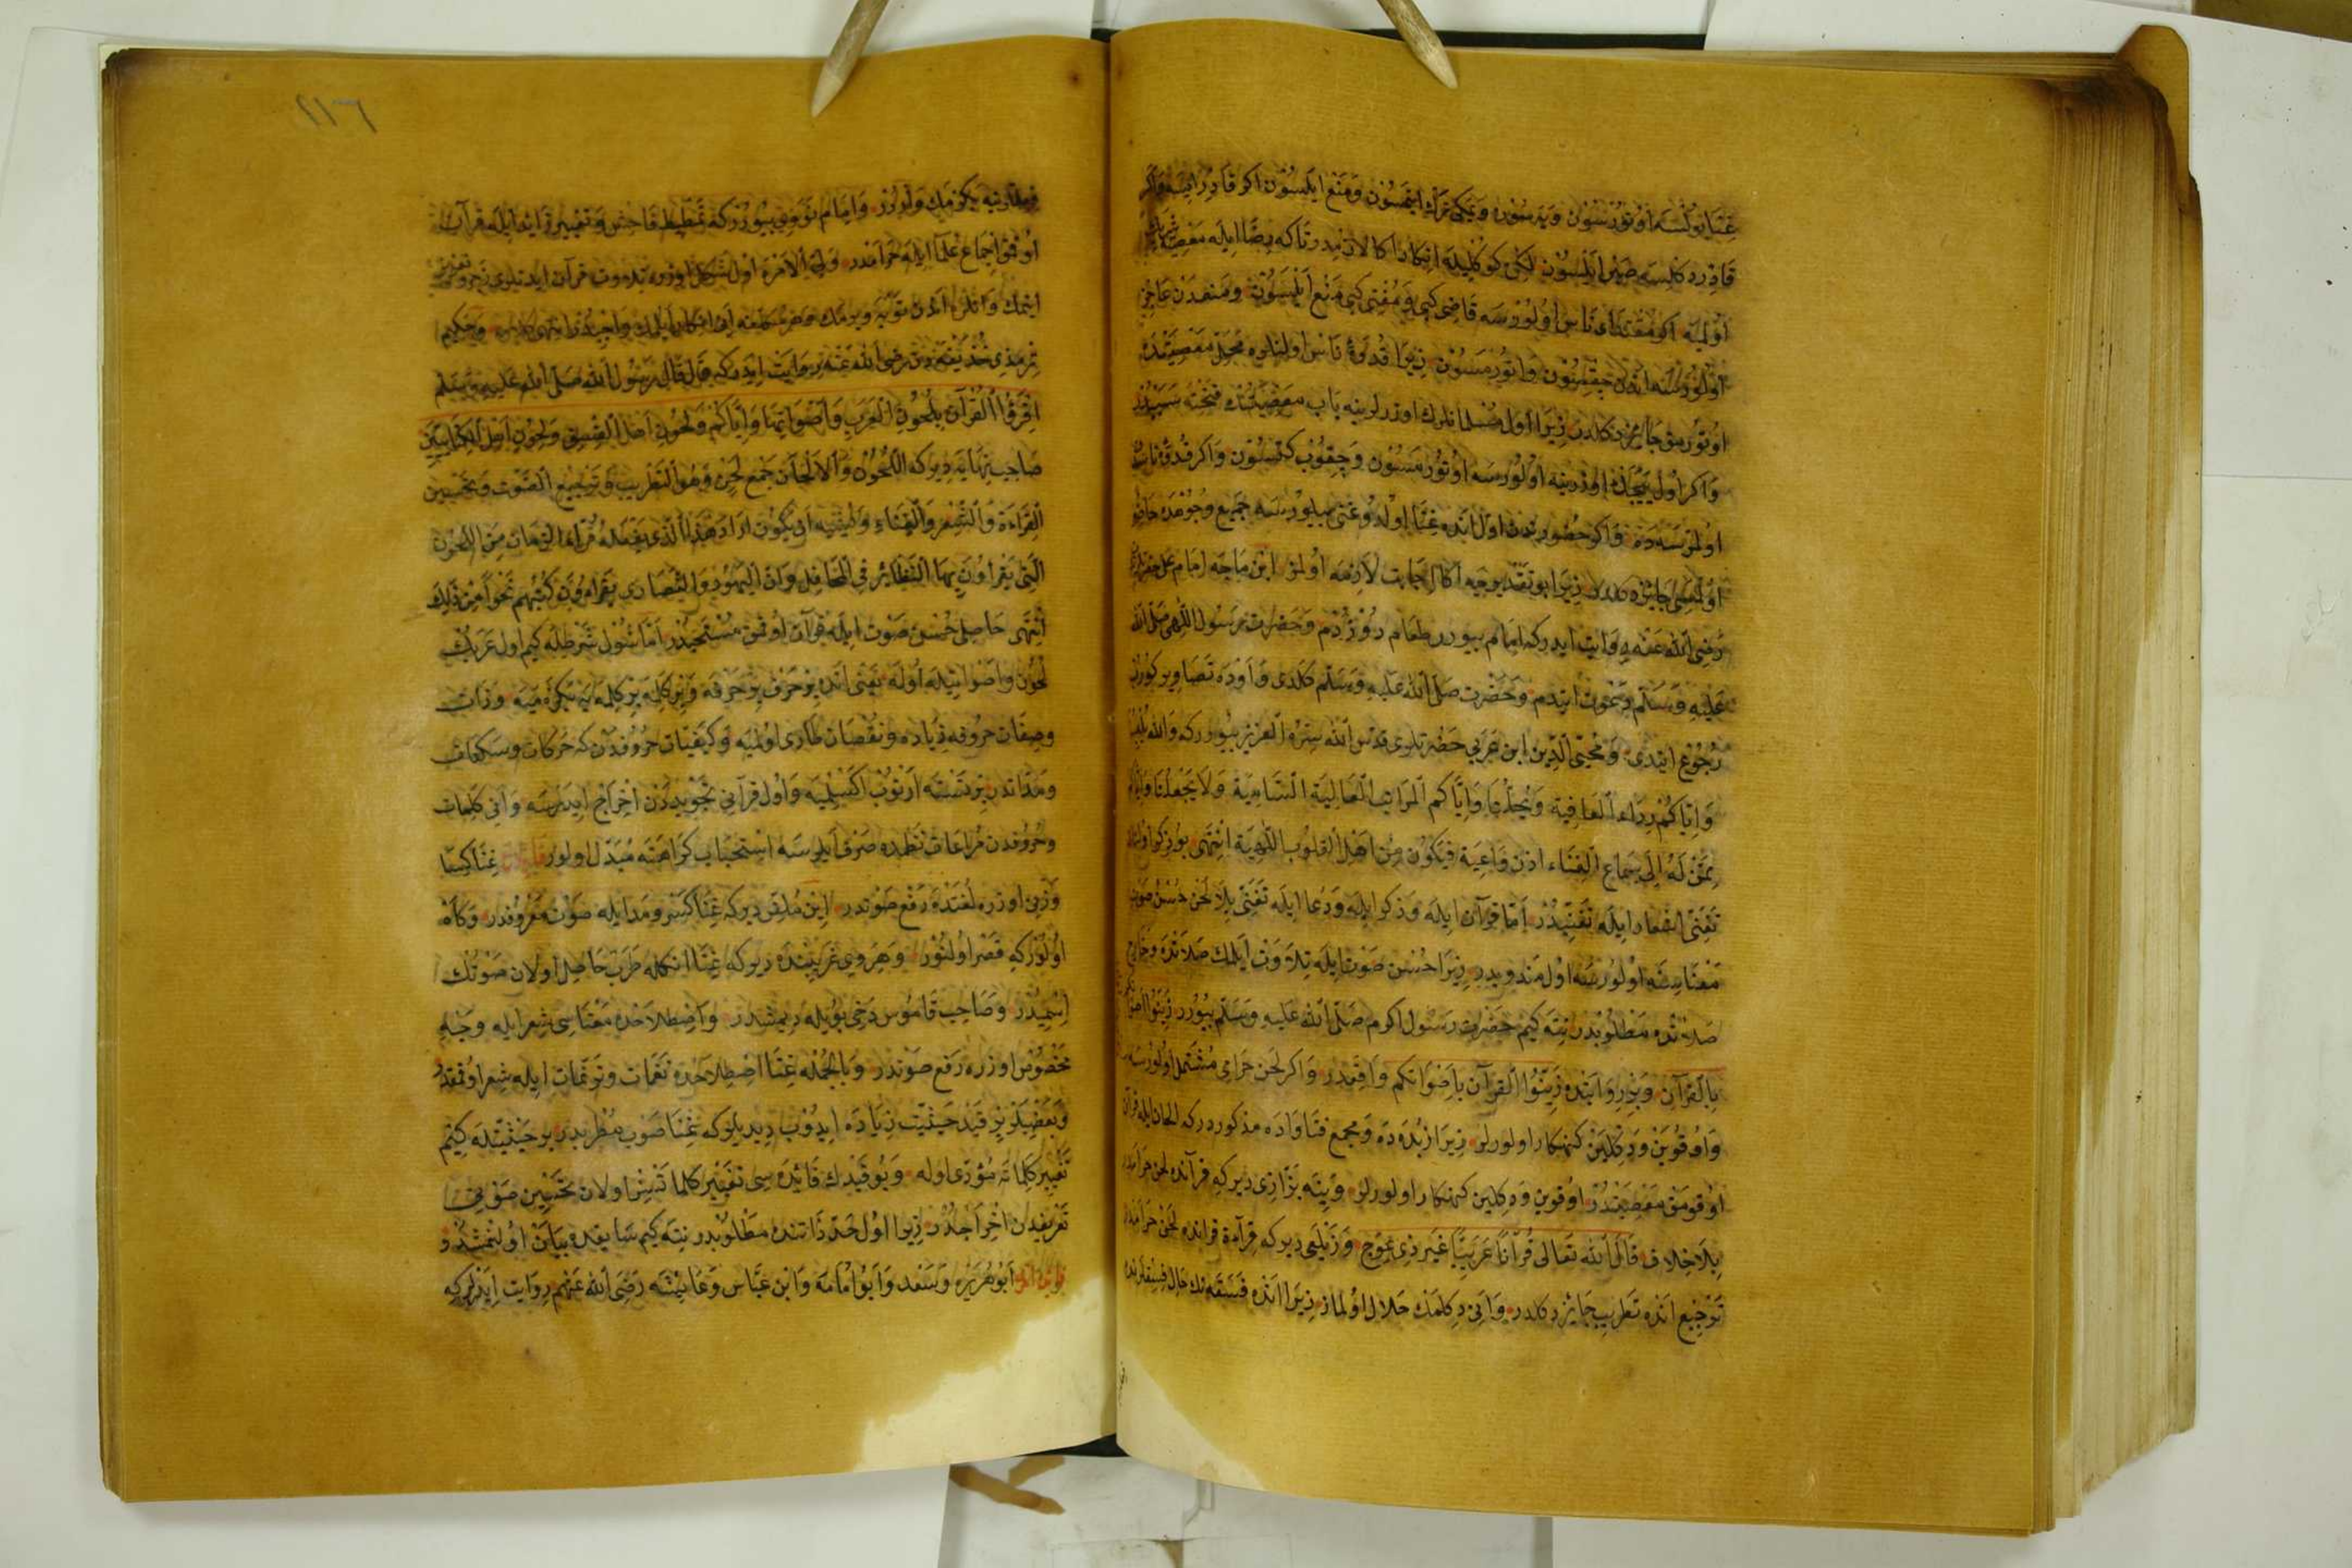 غنا بولنسه اوتورسون ويسون ويمكى ترك ايتمسون ومنع ايلسون اكر قادر ايسه واكر
قادر دكلسه صبر ايلسون لكن كوكليله انكار اكا لازمدر تاكه رضا ايله معصيته شريك
اولميه اكر مقتداء ناس اولورسه قاضى كبى ومفتى كبى منع ايلسون ومنعدن عاجز
اولورسه اندن چقسون واتورمسون زيرا قدوه ناس اولنلره محل معصيتده
اوتورمق جائز دكلدر زيرا اول مسلمانلرك اوزرلرينه باب معصيتك فتحنه سببدر
واكر اول يمك اوزرينه اولورسه اوتورمسون وچقوب كتسون واكر قدوه ناس
اولمزسه ده واكر حضورندن اول انده غنا اولدوغنى بيلورسه جميع وجوهدن حاضر
اولمسى جائز دكلدر زيرا بو تقديرجه اكا اجابت لازمه اولمز ابن ماجه امام على
رضى الله عنه روايت ايدركه امام بيورر طعام دوزردم وحضرت رسول الله صلى الله
عليه وسلم دعوت ايتدم وحضرت صلى الله عليه وسلم كلدى واوده تصاوير كوردى
رجوع ايتدى ومحيى الدين ابن عربى حضرتلرى قدس الله سره العزيز بيوررکه والله يلبسنا
واياكم رداء العافية ويحلنا واياكم المراتب العالية السامية ولا يجعلنا واياكم
ممن له الى سماع الغناء اذن واعية فيكون من اهل القلوب اللاهية انتهى بو ذكر اولنان
تغنى اشعار ايله تغنيدر اما قرآن ايله وذكر ايله ودعا ايله تغنى بلا لحن حسن صوت
معناسنه اولورسه اول مندوبدر زيرا حسن صوت ايله تلاوت ايلمك صلاتده وخارج
صلاتده مطلوبدر نته كيم حضرت رسول اكرم صلى الله عليه وسلم بيورر زينوا اصواتكم
بالقرآن وبر روايتده زينوا القرآن باصواتكم واقعدر واكر لحن حرامى مشتمل اولورسه
واوقوين ودكلين كنهكار اولورلر زيرا زبده ده ومجمع فتاواده مذكوردركه الحان ايله قرآن
اوقومق معصيتدر اوقوين ودكلين كنهكار اولورلر وينه بزازى ديركه قرآنده لحن حرامدر
بلا خلاف قال الله تعالى قرآنا عربيا غير ذى عوج وزيلعى ديركه قراءة قرآنده لحن حرامدر
ترجيع انده تطريب جائز دكلدر وانى دكلمك حلال اولماز زيرا انده فسقه نك حال فسقلرنده
وامام نووى بيوررکه تمطيط فاحش وتغيير زائد ايله قرآن
اوقمق اجماع علما ايله حرامدر ولى الامره اول شكل اوزره تلاوت قرآن ايدنلرى زجر وتعزير
ايتمك وانلره اندن توبه ويرمك
ترمذى حذيفه دن رضى الله عنه روايت ايدركه قال قال رسول الله صلى الله عليه وسلم
اقرؤا القرآن بلحون العرب واصواتها واياكم ولحون اهل الفسق ولحون اهل الكتابين
صاحب نهايه ديركه اللحون والالحان جمع لحن وهو التطريب وترجيع الصوت وتحسين
القراءة والشعر والغناء ويشبه ان يكون اراد هذا الذى يفعله قراء الزمان من اللحون
التى يقراون بها النظائر فى المحافل وان اليهود والنصارى يقراءون كتبهم نحوا من ذلك
انتهى حاصل حسن صوت ايله قرآن اوقمق مستحبدر اما شول شرطله كيم اول عربك
لحون واصواتيله اوله تغنى انده بر حرف بر حرفه وبر كلمه بر كلمه يه بكزميه وذات
وصفات حروفه زياده ونقصان طارى اولميه وكيفيات حروفدن كه حركات وسكنات
ومداتدر بر نسنه ارتوب اكسلميه واول قرآنى تجويددن اخراج ايدرسه وانى كلمات
وحروفدن مراعات نظمده صرف ايلرسه استحباب كراهته مبدل اولور غنا كسا
وزنى اوزره لغتده رفع صوتدر ابن ملقن ديركه غنا كسر ومد ايله صوت معروفدر وكاه
اولوركه قصر اولنور وهروى غريبنده ديركه غنا انكله طرب حاصل اولان صوتك
اسميدر وصاحب قاموس دخى بويله ديمشدر واصطلاحده معناسى شعر ايله وجه
مخصوص اوزره رفع صوتدر وبالجمله غنا اصطلاحده نغمات وترنمات ايله شعر اوقمقدر
وبعضيلر بر قيد حيثيت زياده ايدوب ديديلركه غنا صوت مطربدر بر حيثيتله كيم
تغيير كلماته مؤدى اوله وبو قيدك فائده سى تغيير كلماتسز اولان تحسين صوتى
تعريفدن اخراجدر زيرا اول حد ذاتنده مطلوبدر نته كيم سابقده بيان اولنمشدر و
ابو هريره وسعد وابو امامه وابن عباس وعايشه رضى الله عنهم روايت ايدرلركه